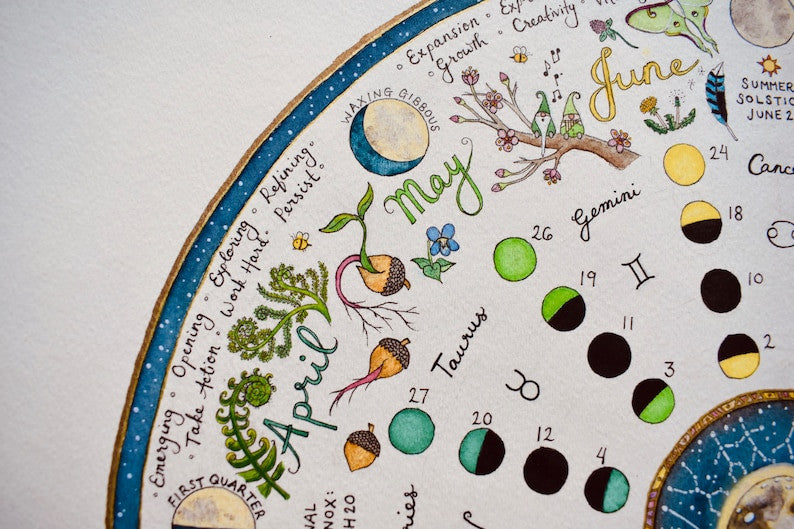 Emerging ° Opening ° Exploring ° Refining °
° Take Action ° Work Hard ° Persist °
° Expansion ° Exp
° Growth ° Creativity °
WAXING GIBBOUS
FIRST QUARTER
June
SUMMER
SOLSTIC
JUNE 2
May
April
Cance
24
18
10
2
Gemini
♊
26
19
11
3
Taurus
♉
27
20
12
4
NAL
NOX:
H20
ries